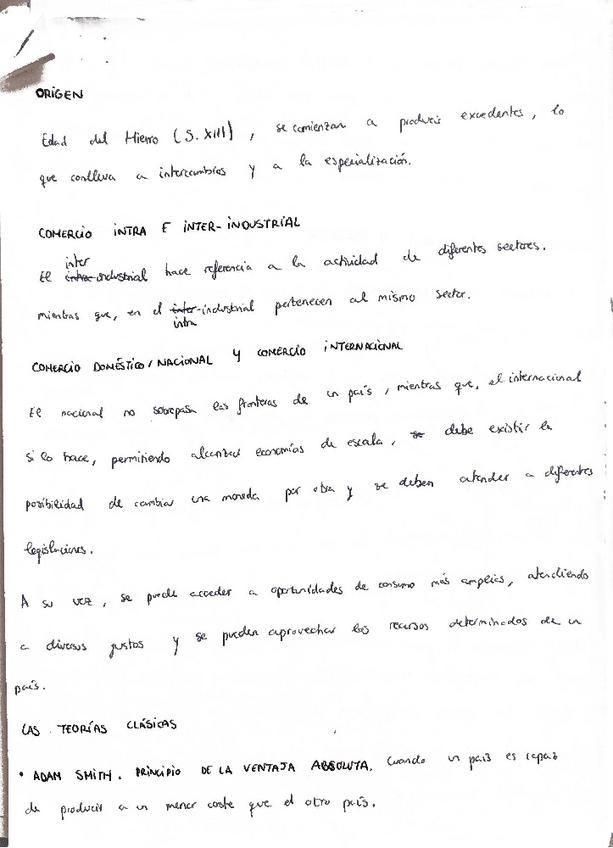 ORIGEN
Edad del Hierro (S. XIII), se comienzan a producir excedentes, lo
que conlleva a intercambios y a la especialización.
COMERCIO INTRA E INTER-INDUSTRIAL
inter
El intra-industrial hace referencia a la actividad de diferentes sectores.
mientras que, en el inter-industrial pertenecen al mismo sector.
intra
COMERCIO DOMÉSTICO/NACIONAL Y COMERCIO INTERNACIONAL
El nacional no sobrepasa las fronteras de un país, mientras que, el internacional
si lo hace, permitiendo alcanzar economías de escala, se debe existir la
posibilidad de cambiar una moneda por otra y se deben atender a diferentes
legislaciones.
A su vez, se puede acceder a oportunidades de consumo más amplias, atendiendo
a diversos gustos y se pueden aprovechar los recursos determinados de un
país.
LAS TEORÍAS CLÁSICAS
• ADAM SMITH. PRINCIPIO DE LA VENTAJA ABSOLUTA. Cuando un país es capaz
de producir a un menor coste que el otro país.